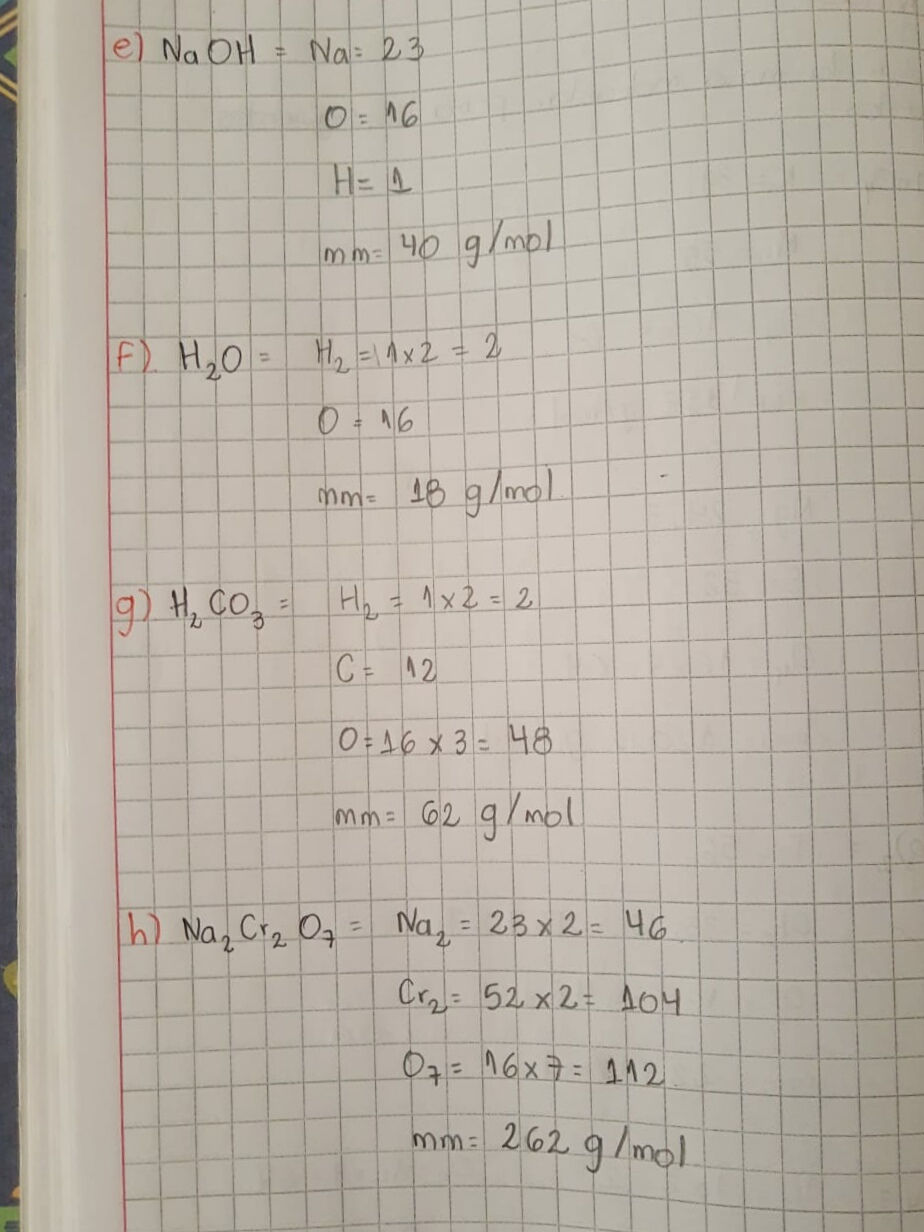 e) NaOH = Na = 23
O = 16
H = 1
mm = 40 g/mol
F) H₂O = H₂ = 1 x 2 = 2
O = 16
mm = 18 g/mol
g) H₂CO₃ = H₂ = 1 x 2 = 2
C = 12
O = 16 x 3 = 48
mm = 62 g/mol
h) Na₂Cr₂O₇ = Na₂ = 23 x 2 = 46
Cr₂ = 52 x 2 = 104
O₇ = 16 x 7 = 112
mm = 262 g/mol